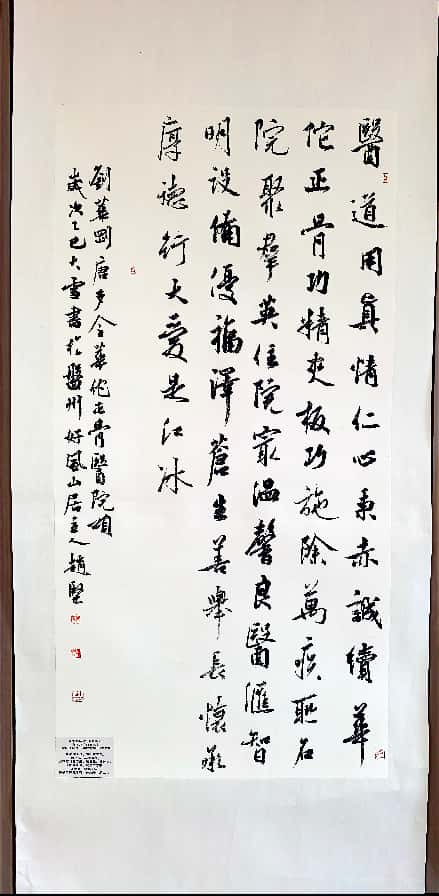 醫道用真情仁心秉赤誠續華
佗正骨功精夾板巧施除萬疾名
院聚群英住院最溫馨良醫匯智
明設備優福澤蒼生善舉長懷承
厚德行大愛是江冰
劉華剛唐多令華佗正骨醫院頌
歲次乙巳大雪書於盤州好風山居主人趙堅